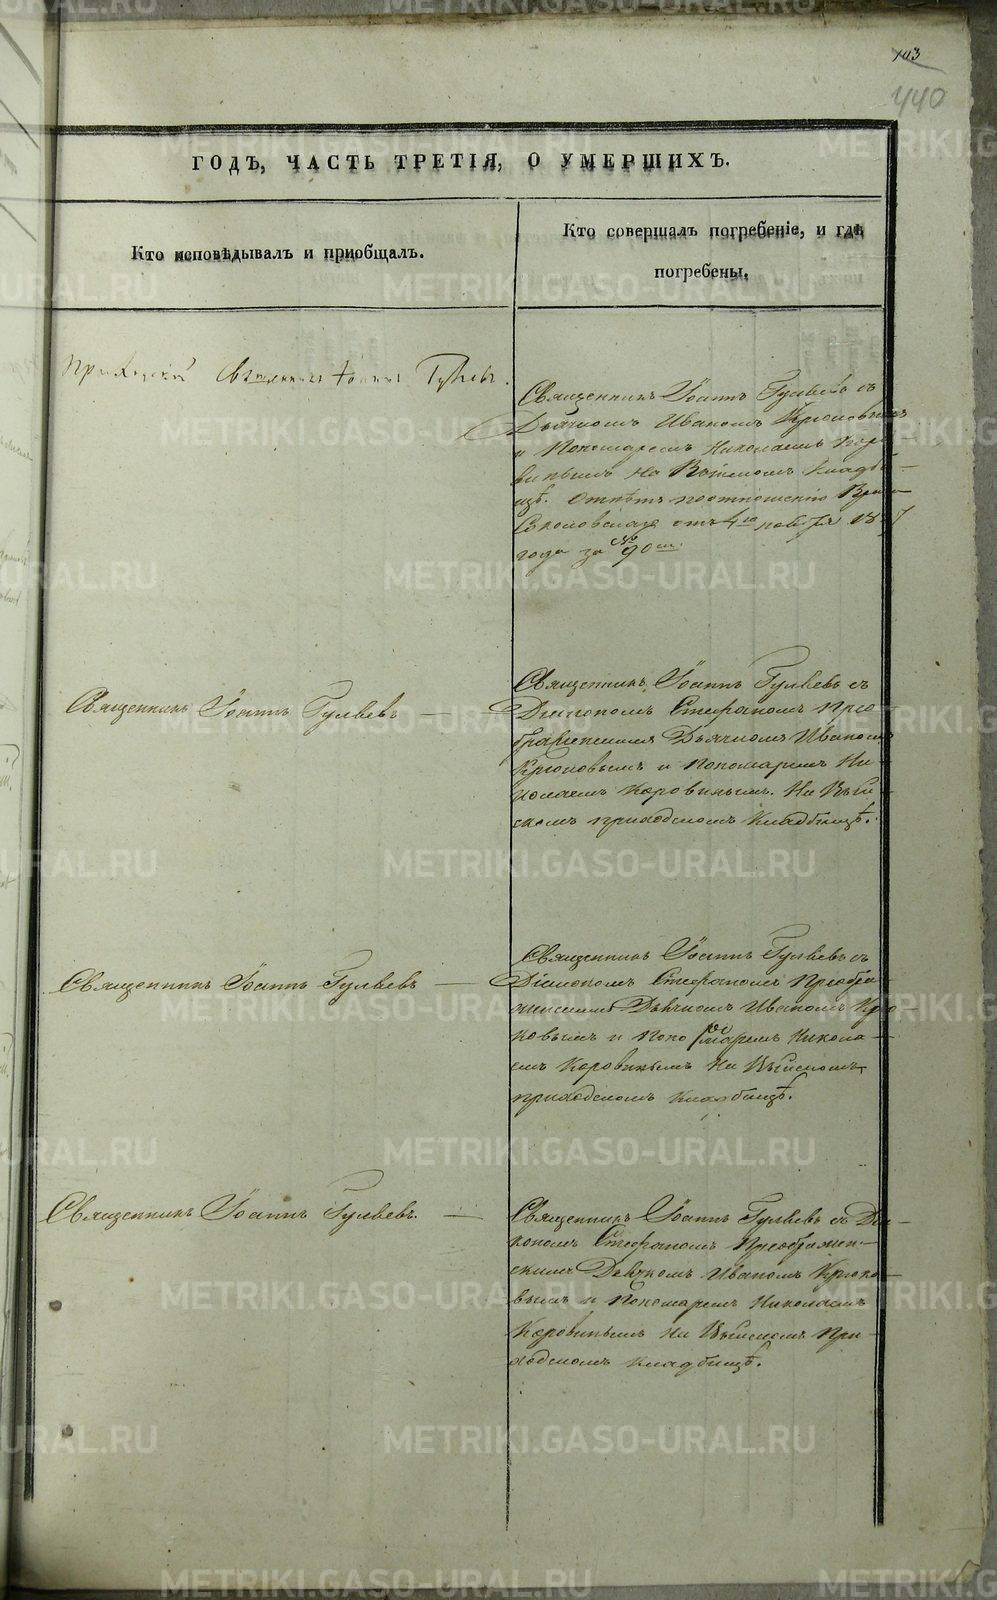 103
440
ГОДЪ, ЧАСТЬ ТРЕТІЯ, О УМЕРШИХЪ.
Кто исповѣдывалъ и пріобщалъ.
Кто совершалъ погребеніе, и гдѣ
погребены.
Приходскій Священникъ Іоаннъ Гуляевъ.
Священникъ Іоаннъ Гуляевъ съ
Дьячкомъ Иваномъ Крюковымъ
и Пономаремъ Николаемъ Коро-
винымъ на кладби-
щѣ.
года за № 90м.
Священникъ Іоаннъ Гуляевъ —
Священникъ Іоаннъ Гуляевъ съ
Діакономъ Стефаномъ Прео-
браженскимъ Дьячкомъ Иваномъ
Крюковымъ и Пономаремъ Ни-
колаемъ Коровинымъ. На Вый-
скомъ приходскомъ Кладбищѣ.
Священникъ Іоаннъ Гуляевъ —
Священникъ Іоаннъ Гуляевъ съ
Діакономъ Стефаномъ Преобра-
женскимъ Дьячкомъ Иваномъ Крю-
ковымъ и Пономаремъ Никола-
емъ Коровинымъ На Выйскомъ
приходскомъ Кладбищѣ.
Священникъ Іоаннъ Гуляевъ. —
Священникъ Іоаннъ Гуляевъ съ Діа-
кономъ Стефаномъ Преображен-
скимъ Дьячкомъ Иваномъ Крюко-
вымъ и Пономаремъ Николаемъ
Коровинымъ На Выйскомъ При-
ходскомъ Кладбищѣ.
METRIKI.GASO-URAL.RU